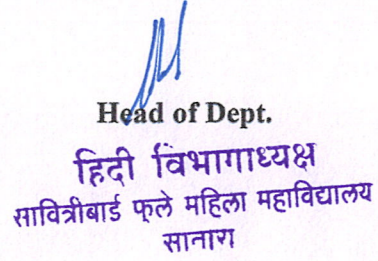 Head of Dept.
हिंदी विभागाध्यक्ष
सावित्रीबाई फुले महिला महाविद्यालय
सातारा